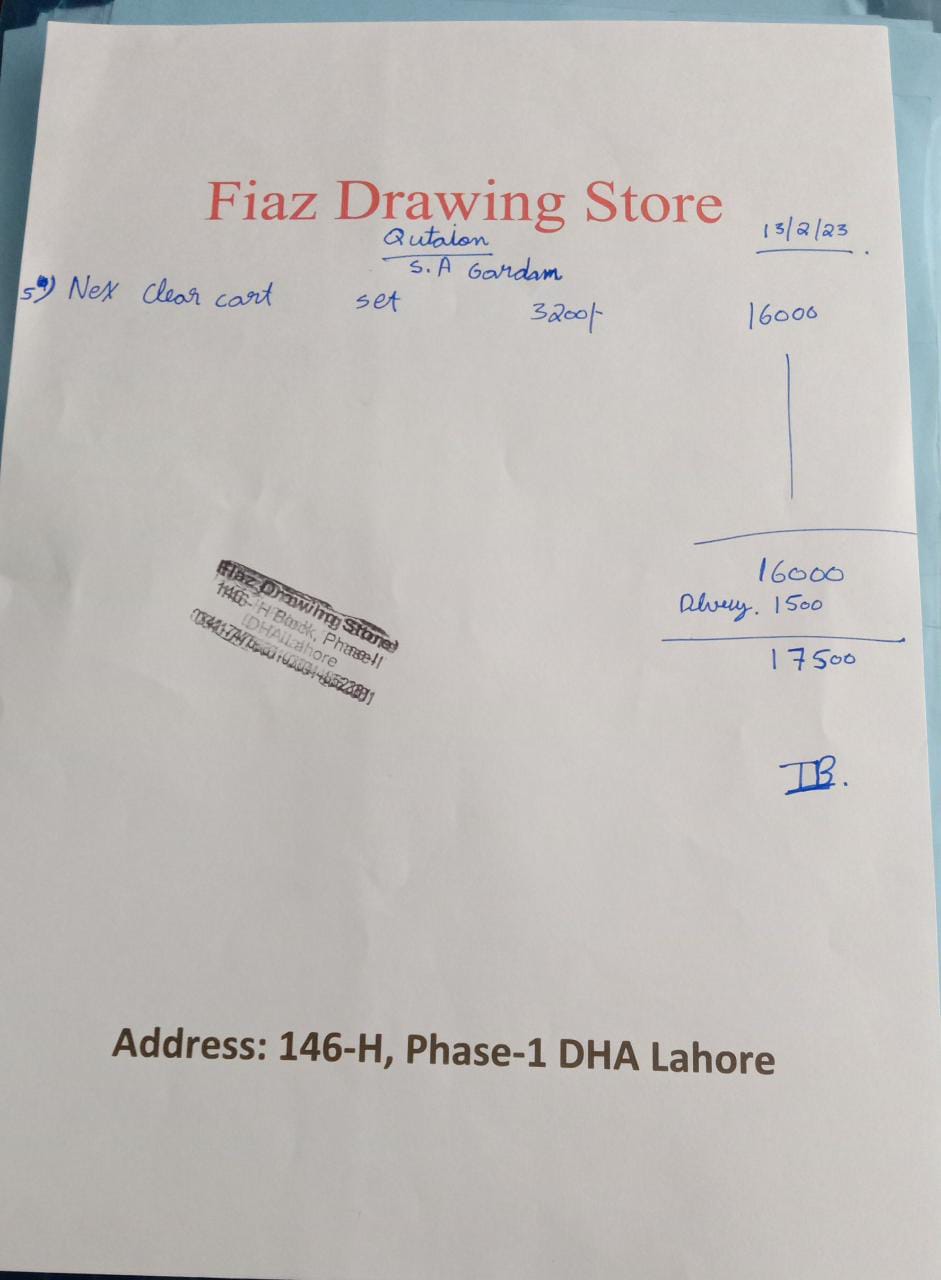 Fiaz Drawing Store
Qutaion
13/2/23
S.A Gardam
5) Nex Clear cart set 3200/- 16000
16000
Dlvery. 1500
17500
IB.
Fiaz Drawing Store
146-H Block, Phase-I
DHA Lahore
Address: 146-H, Phase-1 DHA Lahore